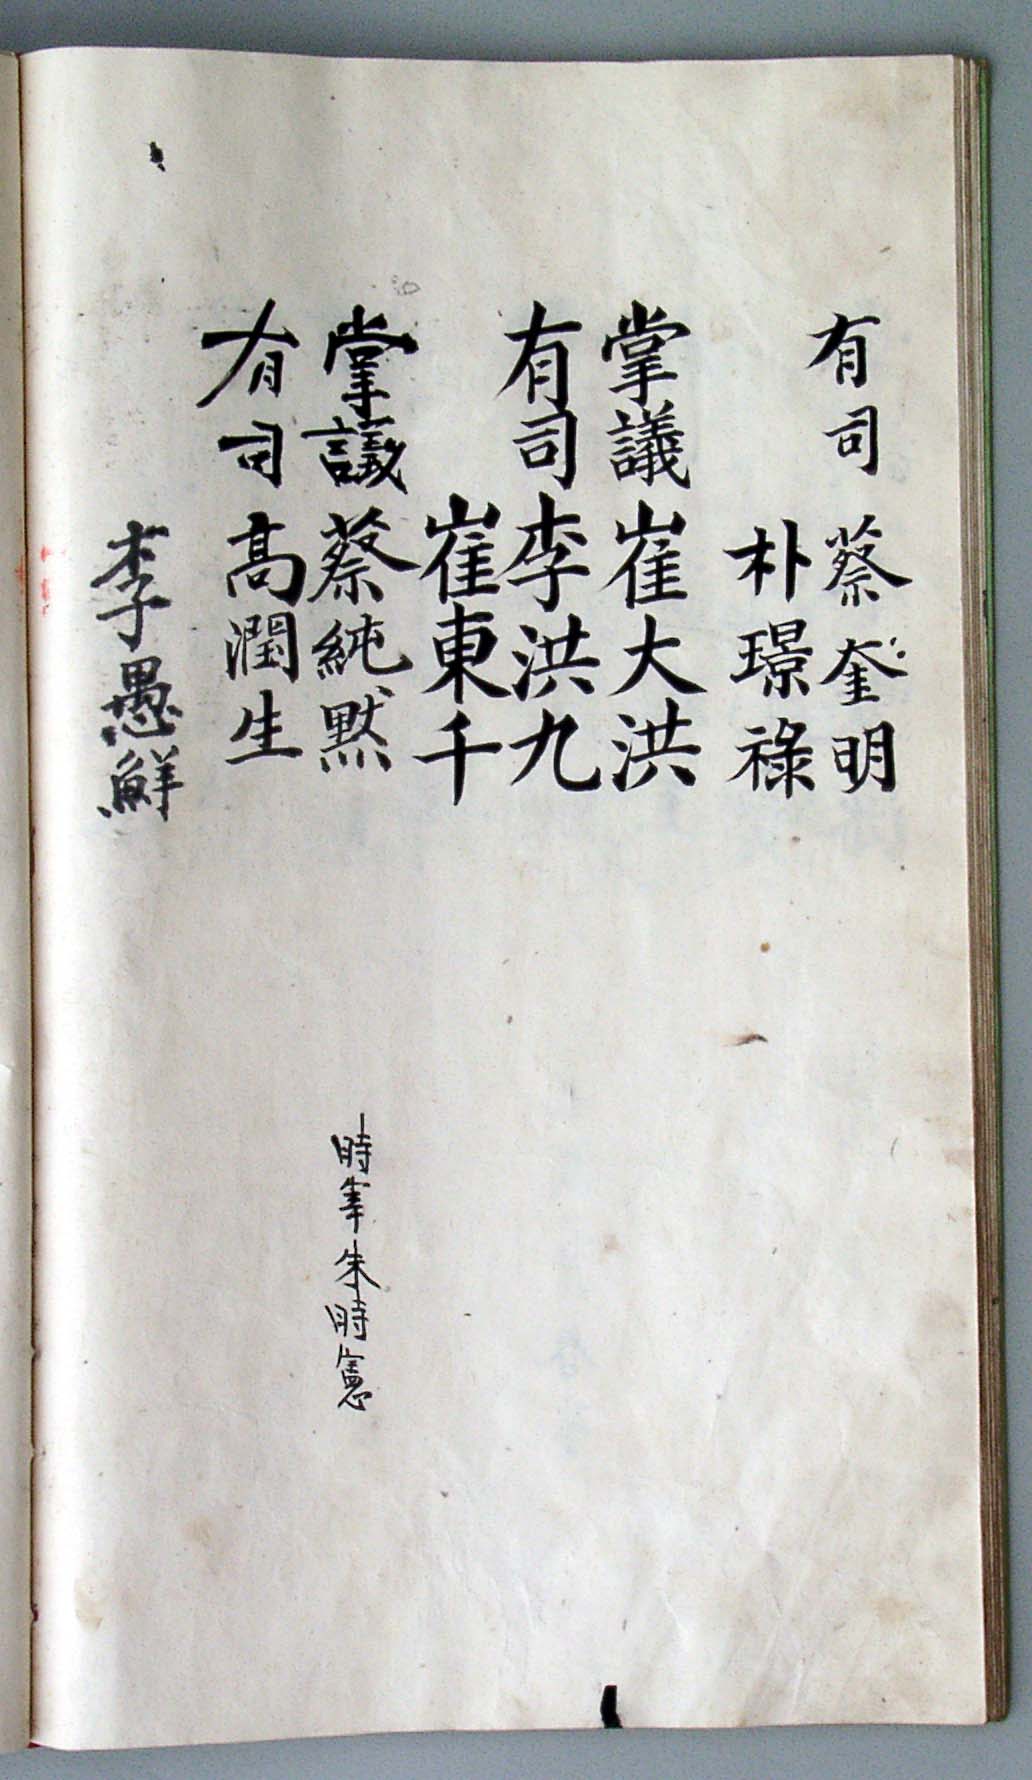 有司 蔡奎明
朴璟祿
掌議 崔大洪
有司 李洪九
崔東千
掌議 蔡純默
時宰朱時憲
有司 高潤生
李愚鮮